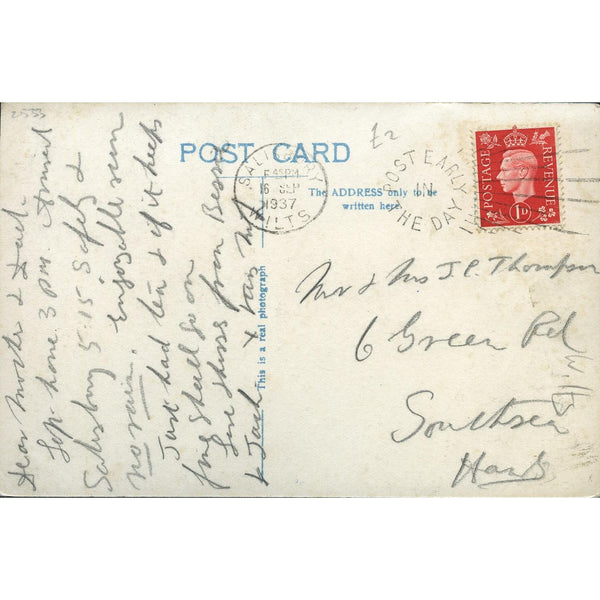 2533
£2
POST CARD
The ADDRESS only to be
written here.
SALISBURY
5 45PM
16 SEP
1937
WILTS
POST EARLY
IN
THE DAY
POSTAGE
REVENUE
1D
This is a real photograph
Dear Mother & Jack
Left home 3 p.m. Arrived
Salisbury 5.15 Safely &
enjoyable run
no rain.
Just had tea & if it keeps
fine shall go on
Love from
& Jack
Mr & Mrs J.P. Thompson
6 Green Rd
Southsea
Hants